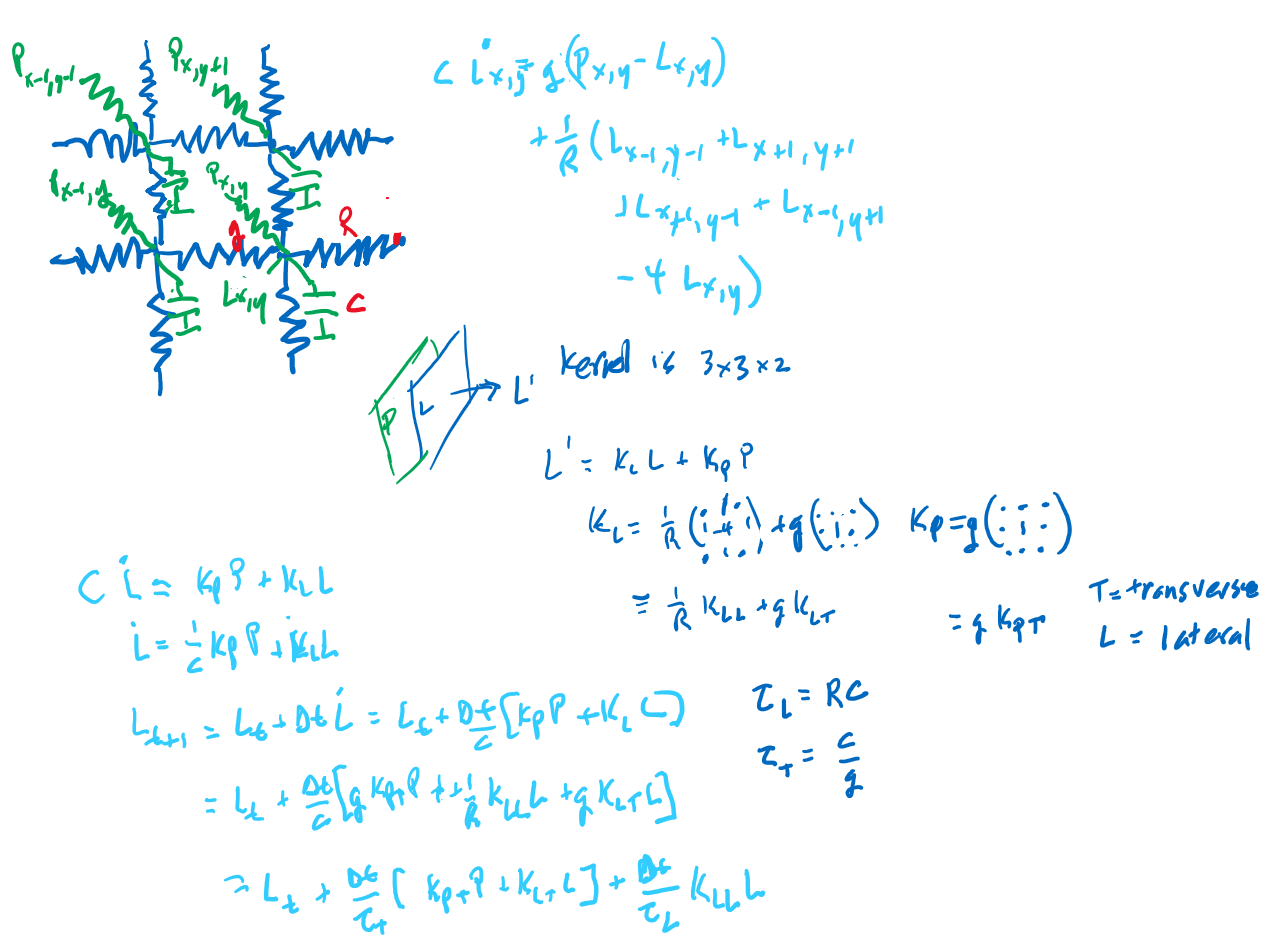 P x-1,y-1
P x,y+1
P x-1,y
P x,y
g
R
L x,y
C
C L̇ x,y = g(P x,y - L x,y)
+ 1/R (L x-1,y-1 + L x+1,y+1
+ L x+1,y-1 + L x-1,y+1
- 4 L x,y)
P
L
→ L'
Kernel is 3x3x2
L' = K_L L + K_P P
K_L = 1/R (· 1 · 1 -4 1 · 1 ·) + g (· · · · 1 · · · ·) K_P = g (· · · · 1 · · · ·)
≡ 1/R K_LL + g K_LT = g K_PT
T = transverse
L = lateral
C L̇ = K_P P + K_L L
L̇ = 1/C K_P P + K_L L
L_t+1 = L_t + Dt L̇ = L_t + Dt/C [K_P P + K_L L]
= L_t + Dt/C [g K_PT P + 1/R K_LL L + g K_LT L]
= L_t + Dt/τ_T [K_PT P + K_LT L] + Dt/τ_L K_LL L
τ_L = RC
τ_T = C/g